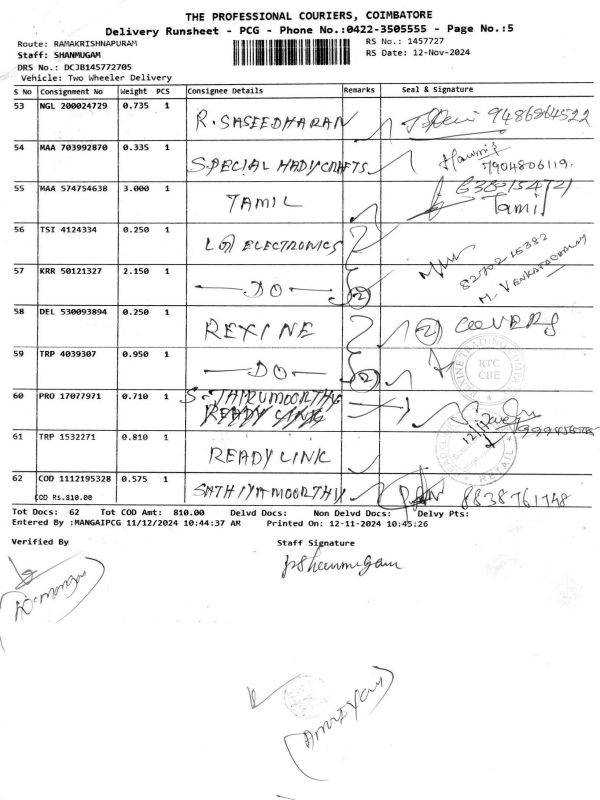 THE PROFESSIONAL COURIERS, COIMBATORE
Delivery Runsheet - PCG - Phone No.:0422-3505555 - Page No.:5
Route: RAMAKRISHNAPURAM
RS No.: 1457727
Staff: SHANMUGAM
RS Date: 12-Nov-2024
DRS No.: DCJB145772705
Vehicle: Two Wheeler Delivery
S No Consignment No Weight PCS Consignee Details Remarks Seal & Signature
53 NGL 200024729 0.735 1 R. SASEEDHARAN 9486864522
54 MAA 703992870 0.335 1 SPECIAL HADYCRAFTS 7904806119.
55 MAA 574754638 3.000 1 TAMIL Tamil
56 TSI 4124334 0.250 1 LG ELECTRONICS
57 KRR 50121327 2.150 1 DO 2 M. VENKATACHALAM
58 DEL 530093894 0.250 1 REXINE 2 COOVERS
59 TRP 4039307 0.950 1 DO 2
RTC
CBE
60 PRO 17077971 0.710 1 S. THIRUMOORTHY
READY LINK
61 TRP 1532271 0.810 1 READY LINK
RETAIL
62 COD 1112195328 0.575 1 SATHIYAMOORTHY 8838761748
COD Rs.810.00
Tot Docs: 62 Tot COD Amt: 810.00 Delvd Docs: Non Delvd Docs: Delvy Pts:
Entered By :MANGAIPCG 11/12/2024 10:44:37 AM Printed On: 12-11-2024 10:45:26
Verified By Staff Signature
pShanmugam